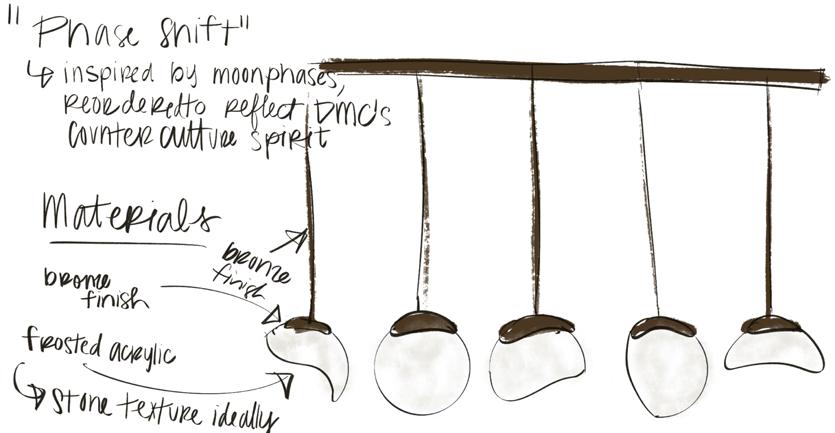 "Phase shift"
↳ inspired by moonphases,
reordered to reflect DMC's
counter culture spirit
Materials
bronze
finish
bronze
finish
frosted acrylic
↳ stone texture ideally